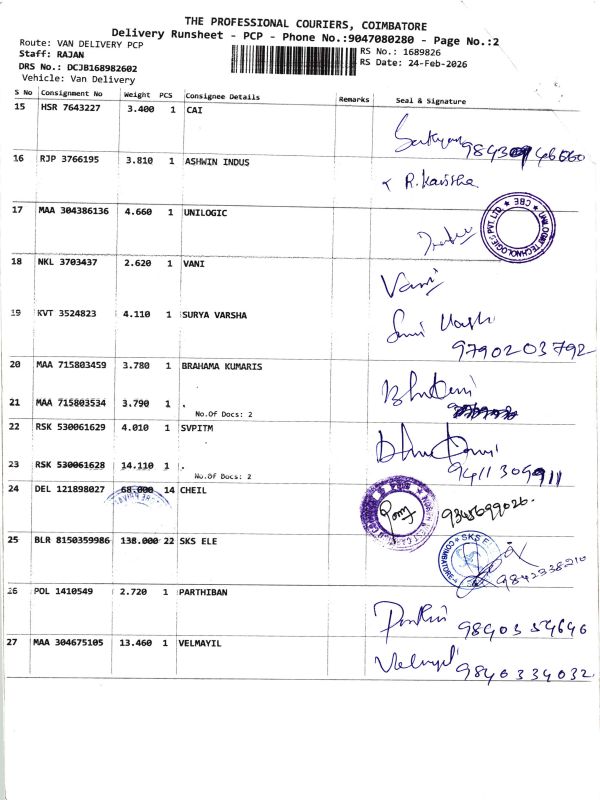 THE PROFESSIONAL COURIERS, COIMBATORE
Delivery Runsheet - PCP - Phone No.:9047080280 - Page No.:2
Route: VAN DELIVERY PCP
Staff: RAJAN
RS No.: 1689826
DRS No.: DCJB168982602
RS Date: 24-Feb-2026
Vehicle: Van Delivery
S No Consignment No Weight PCS Consignee Details Remarks Seal & Signature
15 HSR 7643227 3.400 1 CAI
16 RJP 3766195 3.810 1 ASHWIN INDUS
R. Kavitha
17 MAA 304386136 4.660 1 UNILOGIC
UNILOGIC TECHNOLOGIES PVT. LTD. * CBE *
18 NKL 3703437 2.620 1 VANI
Vani
19 KVT 3524823 4.110 1 SURYA VARSHA
9790203792
20 MAA 715803459 3.780 1 BRAHAMA KUMARIS
21 MAA 715803534 3.790 1 .
No.Of Docs: 2
22 RSK 530061629 4.010 1 SVPITM
23 RSK 530061628 14.110 1 .
No.Of Docs: 2
9411309911
24 DEL 121898027 68.000 14 CHEIL
9345699026.
25 BLR 8150359986 138.000 22 SKS ELE
SKS E
COIMBATORE
9842338210
26 POL 1410549 2.720 1 PARTHIBAN
9840354646
27 MAA 304675105 13.460 1 VELMAYIL
Velmayil
9840334032.